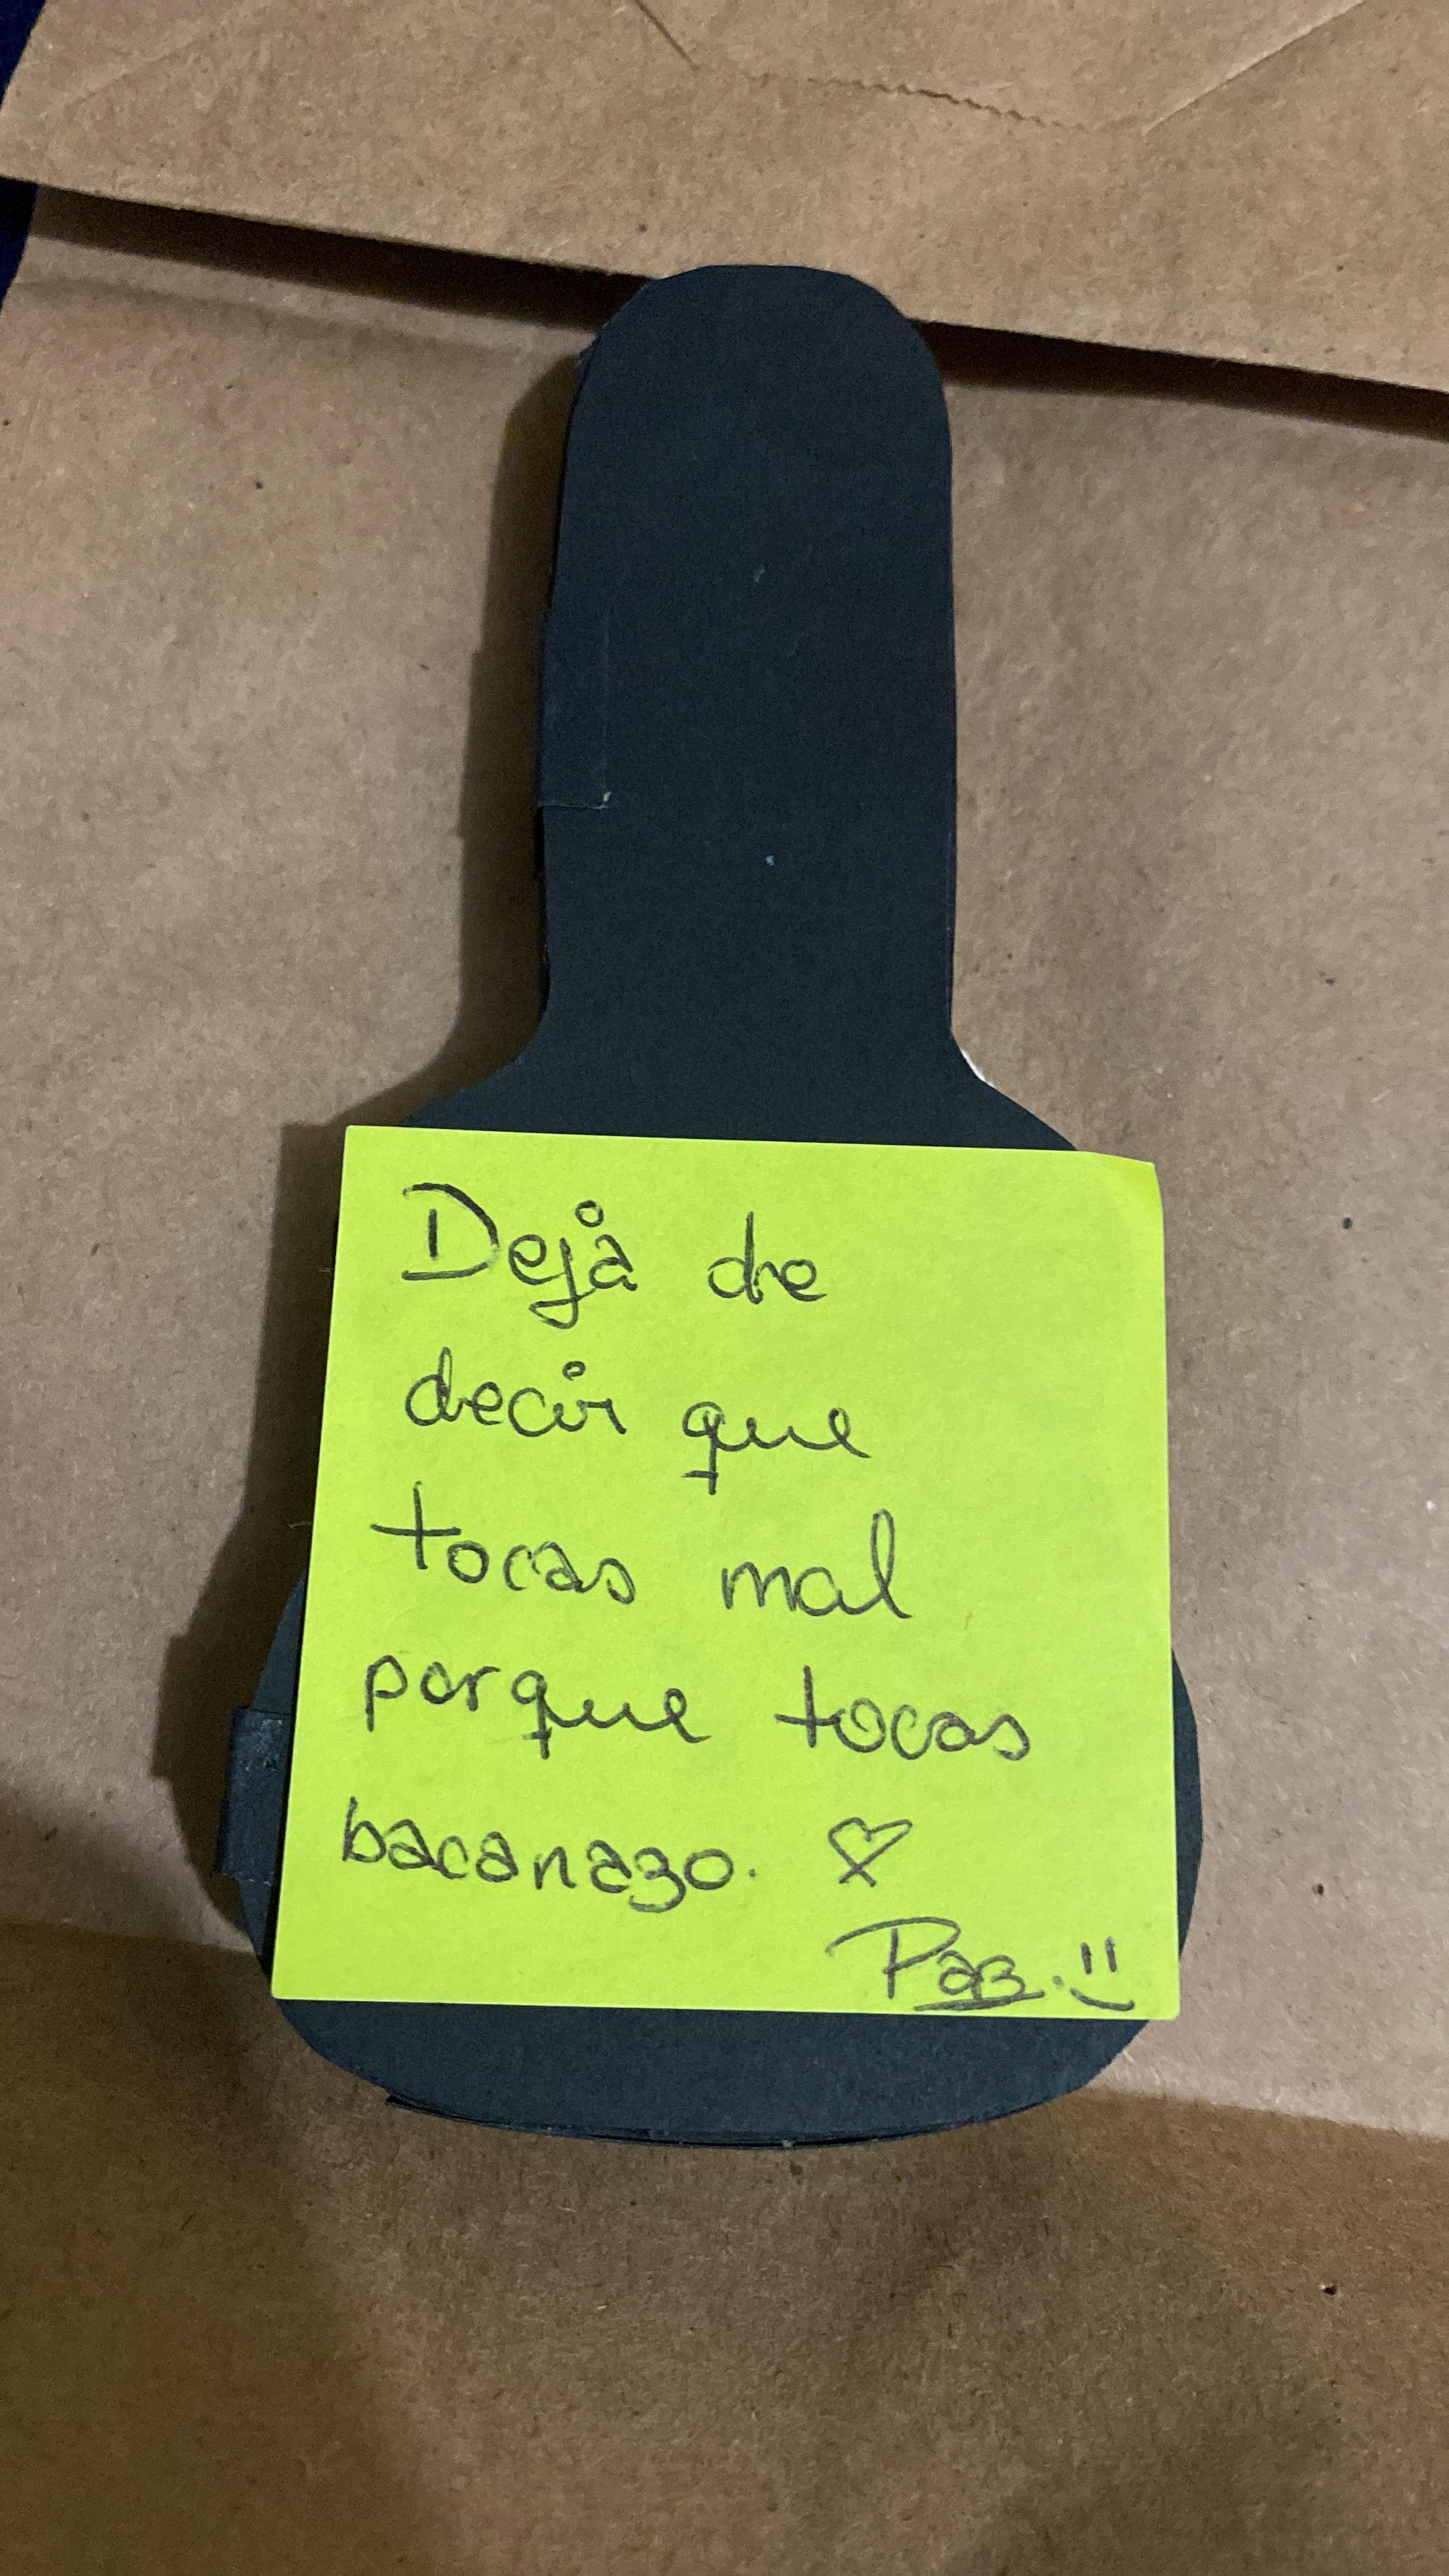 Deja de
decir que
tocas mal
porque tocas
bacanazo. ♡
Paz. :)